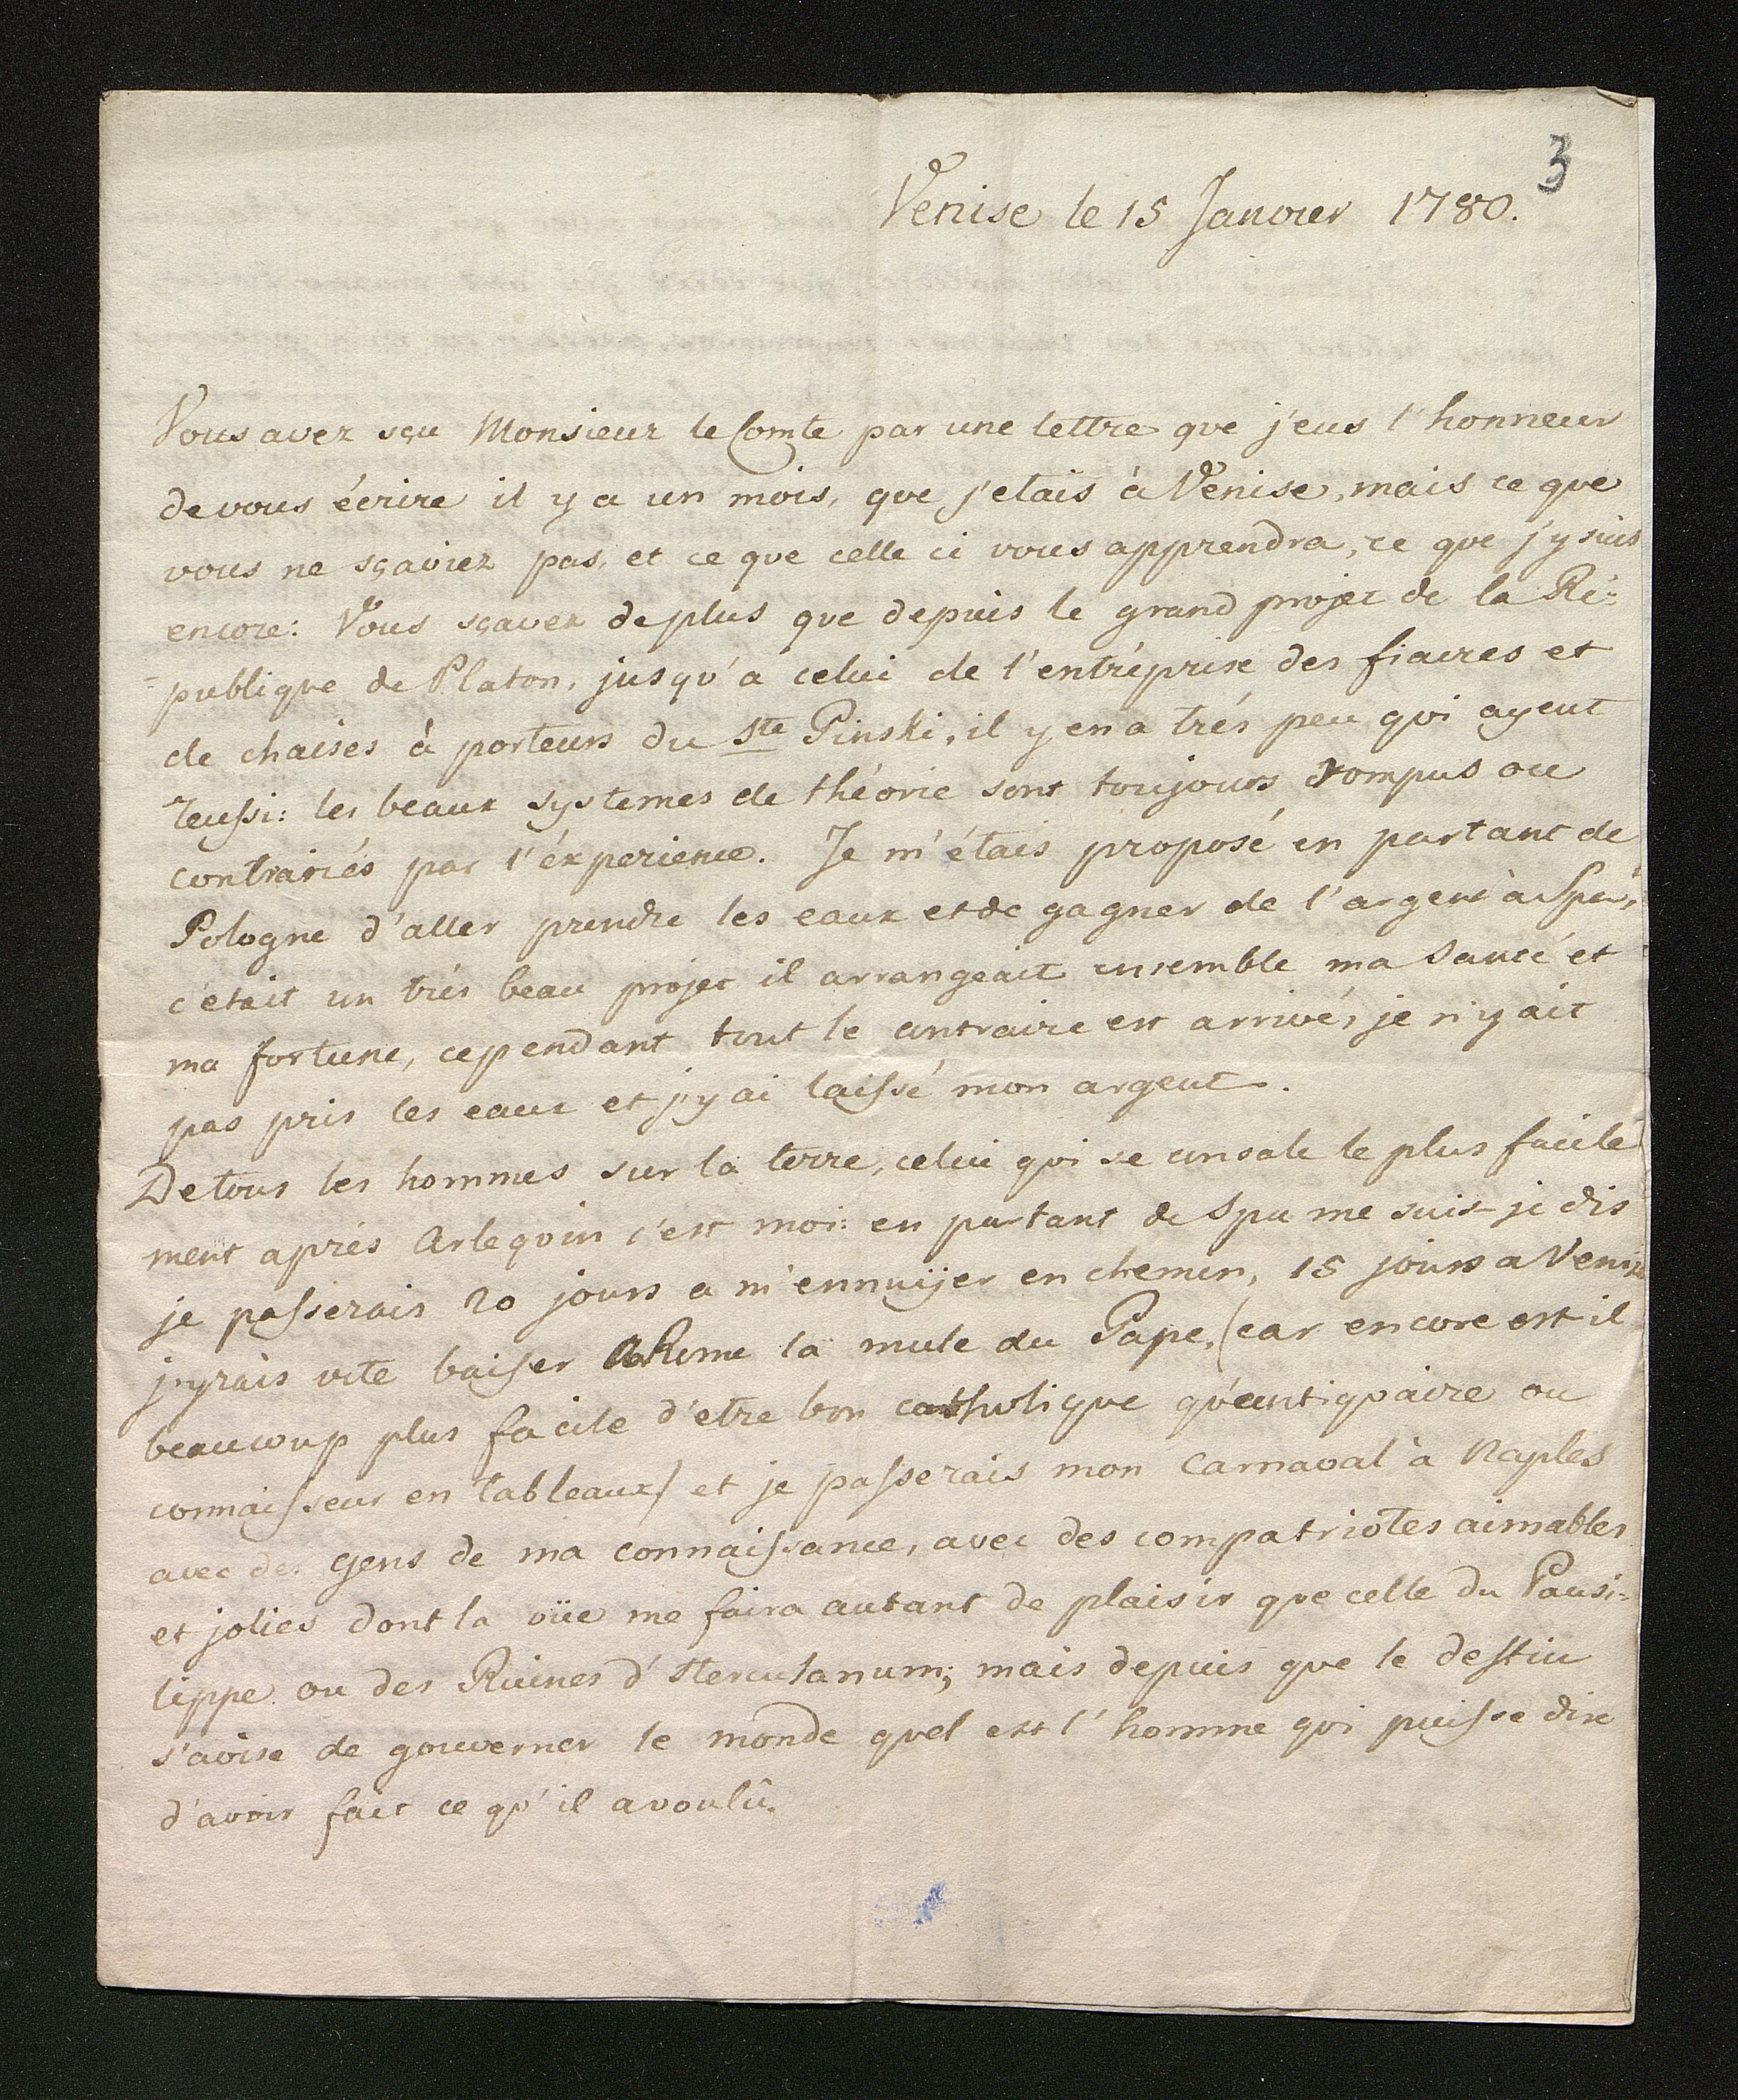 3
Venise le 15 Janvier 1780.
Vous avez sçu Monsieur le Comte par une lettre que j'eus l'honneur
de vous écrire il y a un mois, que j'etais à Venise, mais ce que
vous ne sçaviez pas, et ce que celle ci vous apprendra, ce que j'y suis
encore: Vous sçavez de plus que depuis le grand projet de la Ré=
=publique de Platon, jusqu'a celui de l'entréprise des fiacres et
de chaises à porteurs du Ste Pinski, il y en a trés peu qui ayent
reussi: les beaux systemes de théorie sont toujours rompus ou
contrariés par l'éxperience. Je m'étais proposé en partant de
Pologne d'aller prendre les eaux et de gagner de l'argent à Spa,
c'etait un trés beau projet il arrangeait ensemble ma santé et
ma fortune, cependant tout le contraire est arrivé, je n'y ait
pas pris les eaux et j'y ai laissé mon argent.
De tous les hommes sur la terre, celui qui se consale le plus facile
ment aprés Arlequin c'est moi: en partant de Spa me suis-je dis
je passerais 20 jours a m'ennuÿer en chemin, 15 jours a Venise
j'yrais vite baiser a Rome la mule du Pape, (car encore est il
beaucoup plus facile d'etre bon catholique qu'antiquaire ou
connaisseur en tableaux) et je passerais mon Carnaval à Naples
avec des gens de ma connaissance, avec des compatriotes aimables
et jolies dont la vüe me faira autant de plaisir que celle du Pausi=
lippe ou des Ruines d'Herculanum; mais depuis que le destin
s'avise de gouverner le monde quel est l'homme qui puisse dire
d'avoir fait ce qu'il a voulû.